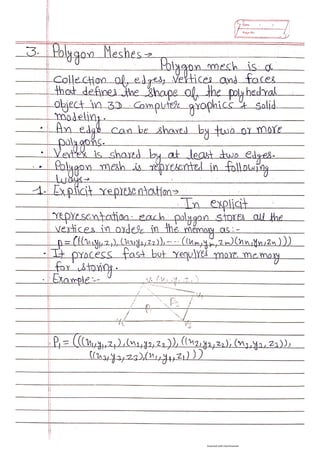 Date
Page No.
3. Polygon Meshes →
Polygon mesh is a
collection of edges, vertices and faces
that defines the shape of the polyhedral
object in 3D computer graphics & solid
modeling.
• An edge can be shared by two or more
polygons.
• Vertex is shared by at least two edges.
• Polygon mesh is represented in following
ways →
1. Explicit representation →
In explicit
representation each polygon stores all the
vertices in order in the memory as :-
P = (((x1,y1,z1),(x2,y2,z2)),--- ((xm,ym,zm)(xn,yn,zn)))
• It process fast but requires more memory
for storing.
• Example :-
P1
P2
P1 = (((x1,y1,z1),(x2,y2,z2)),((x2,y2,z2),(x3,y3,z3)),
((x3,y3,z3),(x1,y1,z1)))
Scanned with CamScanner